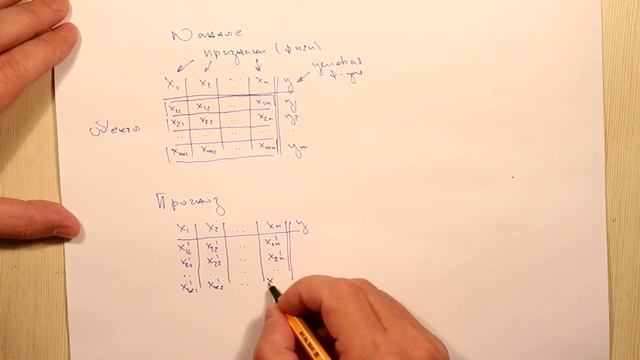 Данные
признаки (фичи)
целевая
ф-ция
x₁ x₂ ·· xₙ y
объекты
x₁₁ x₁₂ ·· x₁ₙ y₁
x₂₁ x₂₂ ·· x₂ₙ y₂
·· ·· ·· ·· ··
xₘ₁ xₘ₂ ·· xₘₙ yₘ
Прогноз
x₁ x₂ ·· xₙ y
x'₁₁ x'₁₂ ·· x'₁ₙ
x'₂₁ x'₂₂ ·· x'₂ₙ
·· ·· ·· ··
x'ₖ₁ x'ₖ₂ ·· x